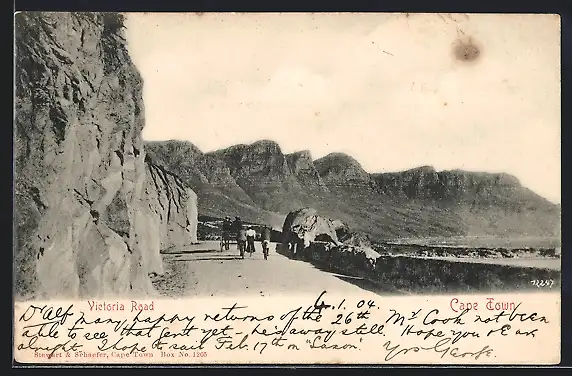 12247
6.1.04
Victoria Road
Cape Town
Dr Alf many happy returns of the 26th Mr Cook not been
able to see that gent yet - he is away still. Hope you & E are
alright. I hope to sail Feb. 17th on "Saxon". Yrs George.
Stewart & Schaefer, Cape Town Box No. 1205